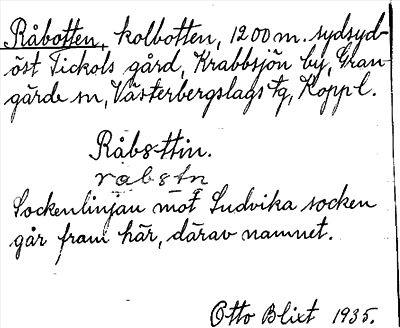 Råbotten, kolbotten, 1200 m. sydsyd-
öst Tickols gård, Krabbsjön by, Gran-
gärde sn, Västerbergslags tg, Koppl.
Råbsttin.
rabstn
Sockenlinjan mot Ludvika socken
går fram här, därav namnet.
Otto Blixt 1935.